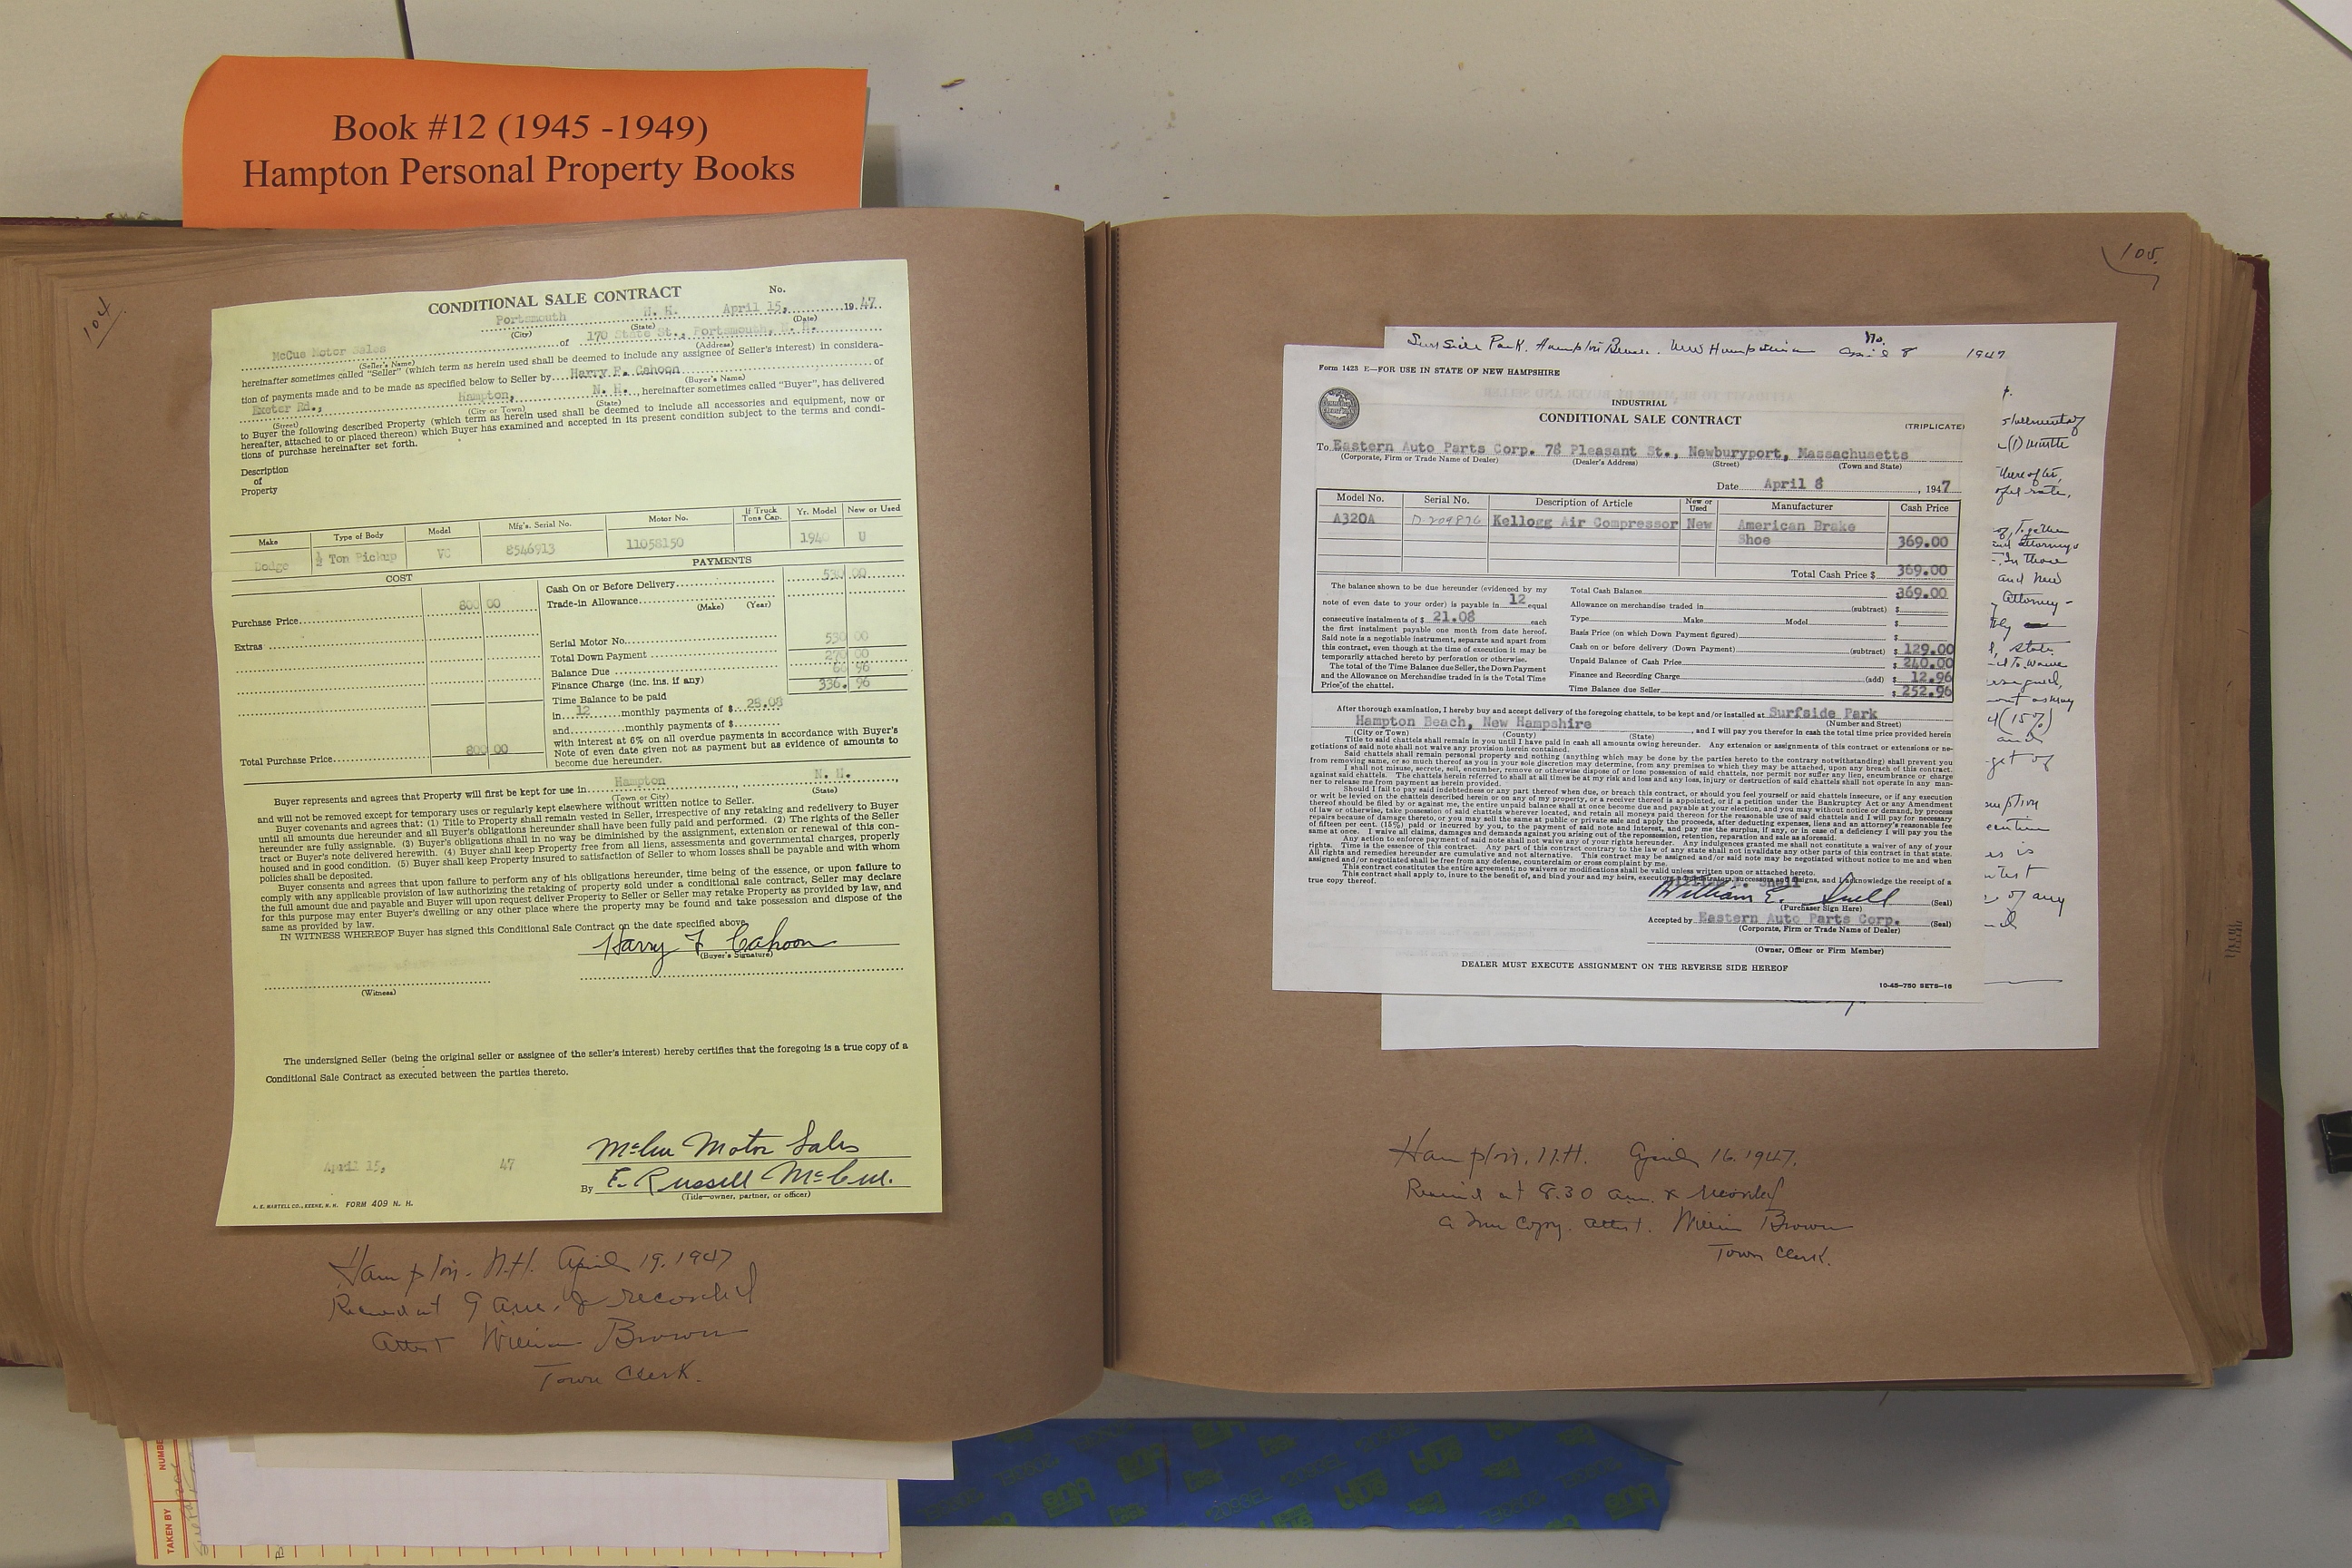 Book #12 (1945 -1949)
Hampton Personal Property Books
104
CONDITIONAL SALE CONTRACT
No.
Portsmouth N. H. April 15, 1947
(City) (State) (Date)
McCue Motor Sales of 170 State St., Portsmouth, N. H.
(Seller's Name) (Address)
hereinafter sometimes called "Seller" (which term as herein used shall be deemed to include any assignee of Seller's interest) in considera-
tion of payments made and to be made as specified below to Seller by Harry F. Cahoon of
(Buyer's Name)
Exeter Rd., Hampton, N. H., hereinafter sometimes called "Buyer", has delivered
(Street) (City or Town) (State)
to Buyer the following described Property (which term as herein used shall be deemed to include all accessories and equipment, now or
hereafter, attached to or placed thereon) which Buyer has examined and accepted in its present condition subject to the terms and condi-
tions of purchase hereinafter set forth.
Description
of
Property
Make Type of Body Model Mfg's. Serial No. Motor No. If Truck Tons Cap. Yr. Model New or Used
Dodge ½ Ton Pickup VC 8546913 11058150 1940 U
COST PAYMENTS
Purchase Price 800 00
Extras
Total Purchase Price 800 00
Cash On or Before Delivery 530 00
Trade-in Allowance
(Make) (Year)
Serial Motor No.
Total Down Payment 530 00
Balance Due 270 00
Finance Charge (inc. ins. if any) 66 96
Time Balance to be paid 336. 96
in 12 monthly payments of $ 28.08
and monthly payments of $
with interest at 6% on all overdue payments in accordance with Buyer's
Note of even date given not as payment but as evidence of amounts to
become due hereunder.
Buyer represents and agrees that Property will first be kept for use in Hampton, N. H.,
(Town or City) (State)
and will not be removed except for temporary uses or regularly kept elsewhere without written notice to Seller.
Buyer covenants and agrees that: (1) Title to Property shall remain vested in Seller, irrespective of any retaking and redelivery to Buyer
until all amounts due hereunder and all Buyer's obligations hereunder shall have been fully paid and performed. (2) The rights of the Seller
hereunder are fully assignable. (3) Buyer's obligations shall in no way be diminished by the assignment, extension or renewal of this con-
tract or Buyer's note delivered herewith. (4) Buyer shall keep Property free from all liens, assessments and governmental charges, properly
housed and in good condition. (5) Buyer shall keep Property insured to satisfaction of Seller to whom losses shall be payable and with whom
policies shall be deposited.
Buyer consents and agrees that upon failure to perform any of his obligations hereunder, time being of the essence, or upon failure to
comply with any applicable provision of law authorizing the retaking of property sold under a conditional sale contract, Seller may declare
the full amount due and payable and Buyer will upon request deliver Property to Seller or Seller may retake Property as provided by law, and
for this purpose may enter Buyer's dwelling or any other place where the property may be found and take possession and dispose of the
same as provided by law.
IN WITNESS WHEREOF Buyer has signed this Conditional Sale Contract on the date specified above.
Harry F Cahoon
(Buyer's Signature)
(Witness)
The undersigned Seller (being the original seller or assignee of the seller's interest) hereby certifies that the foregoing is a true copy of a
Conditional Sale Contract as executed between the parties thereto.
McCue Motor Sales
April 15, 47
By E. Russell McCue.
(Title—owner, partner, or officer)
A. E. MARTELL CO., KEENE, N. H. FORM 409 N. H.
Hampton. N.H. April 19, 1947
Received at 9 a.m. & recorded
Attest William Brown
Town Clerk.
105.
Surfside Park, Hampton Beach, New Hampshire No. April 8 1947
Form 1423 E—FOR USE IN STATE OF NEW HAMPSHIRE
INDUSTRIAL
CONDITIONAL SALE CONTRACT
(TRIPLICATE)
To Eastern Auto Parts Corp. 78 Pleasant St., Newburyport, Massachusetts
(Corporate, Firm or Trade Name of Dealer) (Dealer's Address) (Street) (Town and State)
Date April 8, 1947
Model No. Serial No. Description of Article New or Used Manufacturer Cash Price
A320A D-209876 Kellogg Air Compressor New American Brake
Shoe 369.00
Total Cash Price $ 369.00
The balance shown to be due hereunder (evidenced by my
note of even date to your order) is payable in 12 equal
consecutive instalments of $ 21.08 each
the first instalment payable one month from date hereof.
Said note is a negotiable instrument, separate and apart from
this contract, even though at the time of execution it may be
temporarily attached hereto by perforation or otherwise.
The total of the Time Balance due Seller, the Down Payment
and the Allowance on Merchandise traded in is the Total Time
Price of the chattel.
Total Cash Balance 369.00
Allowance on merchandise traded in (subtract) $
Type Make Model $
Basis Price (on which Down Payment figured) $
Cash on or before delivery (Down Payment) (subtract) $ 129.00
Unpaid Balance of Cash Price $ 240.00
Finance and Recording Charge (add) $ 12.96
Time Balance due Seller $ 252.96
After thorough examination, I hereby buy and accept delivery of the foregoing chattels, to be kept and/or installed at Surfside Park
(Number and Street)
Hampton Beach, New Hampshire, and I will pay you therefor in cash the total time price provided herein
(City or Town) (County) (State)
Title to said chattels shall remain in you until I have paid in cash all amounts owing hereunder. Any extension or assignments of this contract or extensions or ne-
gotiations of said note shall not waive any provision herein contained.
Said chattels shall remain personal property and nothing (anything which may be done by the parties hereto to the contrary notwithstanding) shall prevent you
from removing same, or so much thereof as you in your sole discretion may determine, from any premises to which they may be attached, upon any breach of this contract.
I shall not misuse, secrete, sell, encumber, remove or otherwise dispose of or lose possession of said chattels, nor permit nor suffer any lien, encumbrance or charge
against said chattels. The chattels herein referred to shall at all times be at my risk and loss and any loss, injury or destruction of said chattels shall not operate in any man-
ner to release me from payment as herein provided.
Should I fail to pay said indebtedness or any part thereof when due, or breach this contract, or should you feel yourself or said chattels insecure, or if any execution
or writ be levied on the chattels described herein or on any of my property, or a receiver thereof is appointed, or if a petition under the Bankruptcy Act or any Amendment
thereof should be filed by or against me, the entire unpaid balance shall at once become due and payable at your election, and you may without notice or demand, by process
of law or otherwise, take possession of said chattels wherever located, and retain all moneys paid thereon for the reasonable use of said chattels and I will pay for necessary
repairs because of damage thereto, or you may sell the same at public or private sale and apply the proceeds, after deducting expenses, liens and an attorney's reasonable fee
of fifteen per cent. (15%) paid or incurred by you, to the payment of said note and interest, and pay me the surplus, if any, or in case of a deficiency I will pay you the
same at once. I waive all claims, damages and demands against you arising out of the repossession, retention, reparation and sale as aforesaid.
Any action to enforce payment of said note shall not waive any of your rights hereunder. Any indulgences granted me shall not constitute a waiver of any of your
rights. Time is the essence of this contract. Any part of this contract contrary to the law of any state shall not invalidate any other parts of this contract in that state.
All rights and remedies hereunder are cumulative and not alternative. This contract may be assigned and/or said note may be negotiated without notice to me and when
assigned and/or negotiated shall be free from any defense, counterclaim or cross complaint by me.
This contract constitutes the entire agreement; no waivers or modifications shall be valid unless written upon or attached hereto.
This contract shall apply to, inure to the benefit of, and bind your and my heirs, executors, administrators, successors and assigns, and I acknowledge the receipt of a
true copy thereof.
William E. Snell
William E. Snell (Seal)
(Purchaser Sign Here)
Accepted by Eastern Auto Parts Corp. (Seal)
(Corporate, Firm or Trade Name of Dealer)
(Owner, Officer or Firm Member)
DEALER MUST EXECUTE ASSIGNMENT ON THE REVERSE SIDE HEREOF
10-45-750 SETS-16
thereafter,
together
and attorneys
In those
and New
Attorney
State
to waive
(15%)
and
get of
is
of any
Hampton, N.H. April 16, 1947.
Received at 8.30 a.m. & recorded
a true copy. Attest. William Brown
Town Clerk.
NUMBE
TAKEN BY